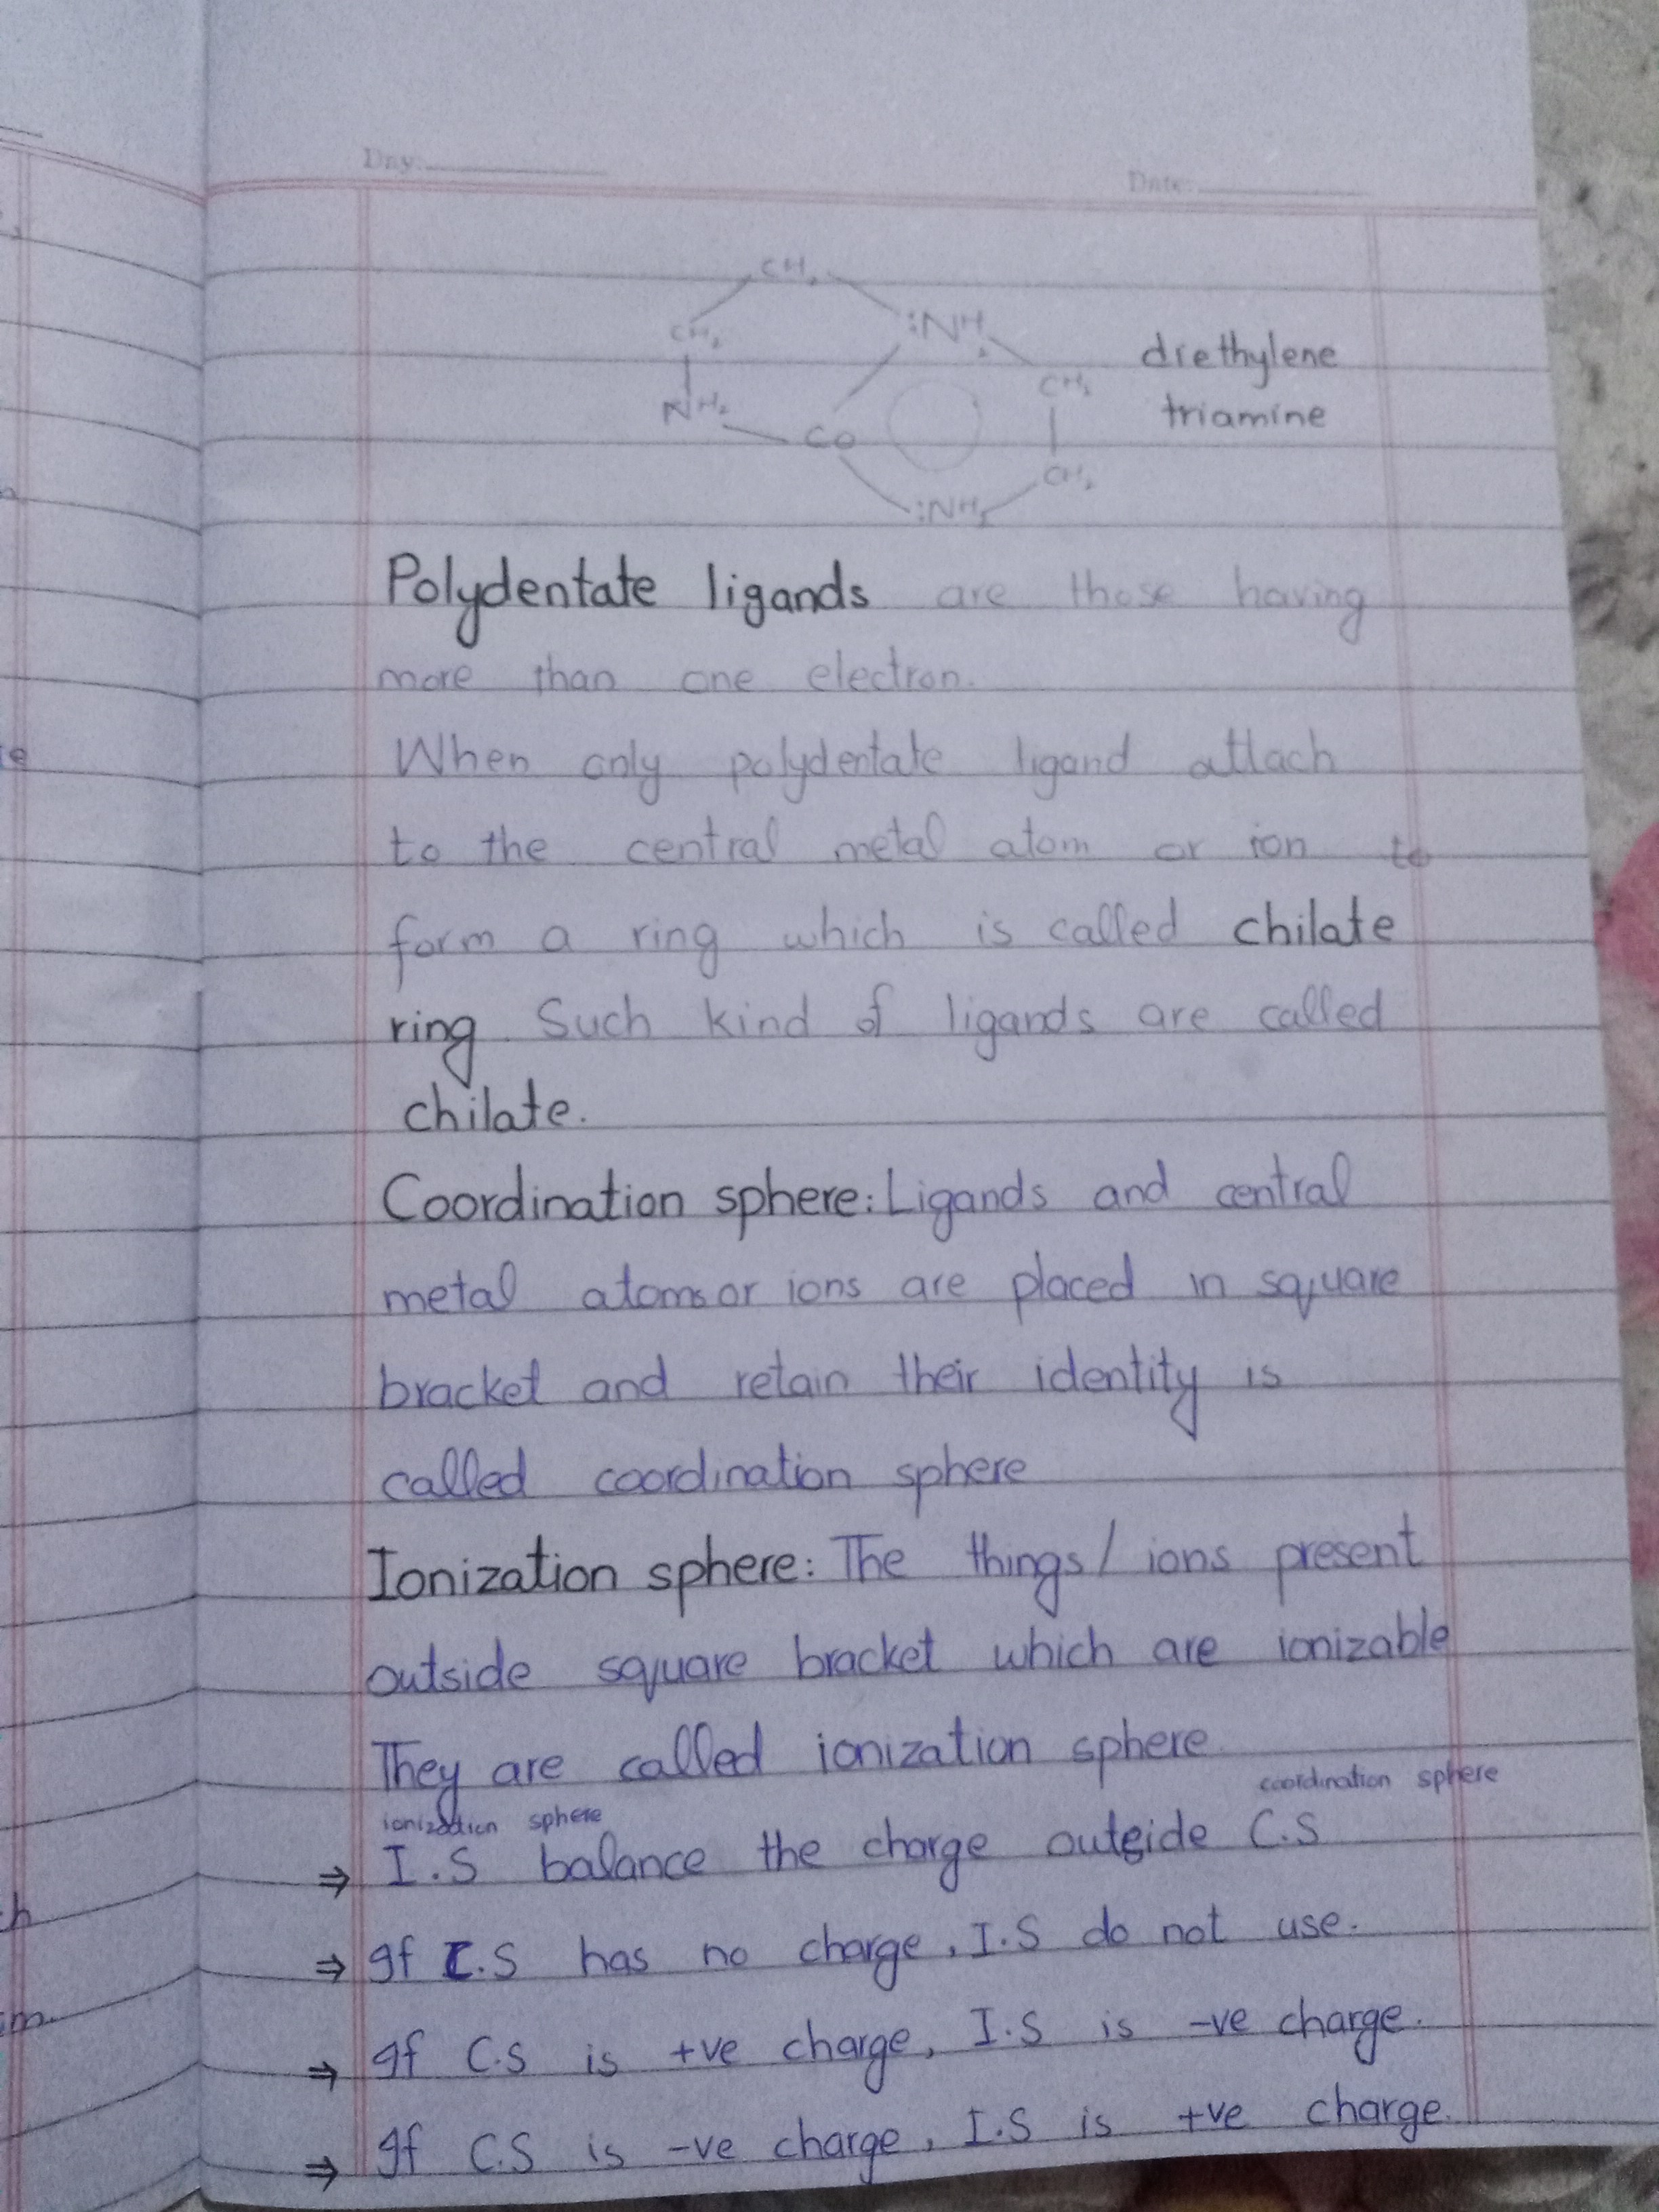 Day:
Date:
CH₂
CH₂ :NH₂
diethylene
CH₂
NH₂
triamine
Co
CH₂
:NH₂
Polydentate ligands are those having
more than one electron.
When only polydentate ligand attach
to the central metal atom or ion to
form a ring which is called chilate
ring. Such kind of ligands are called
chilate.
Coordination sphere: Ligands and central
metal atoms or ions are placed in square
bracket and retain their identity is
called coordination sphere
Ionization sphere: The things/ ions present
outside square bracket which are ionizable
They are called ionization sphere.
ionization sphere coordination sphere
⇒ I.S balance the charge outside C.S
⇒ If C.S has no charge, I.S do not use.
⇒ If C.S is +ve charge, I.S is -ve charge.
⇒ If C.S is -ve charge, I.S is +ve charge.